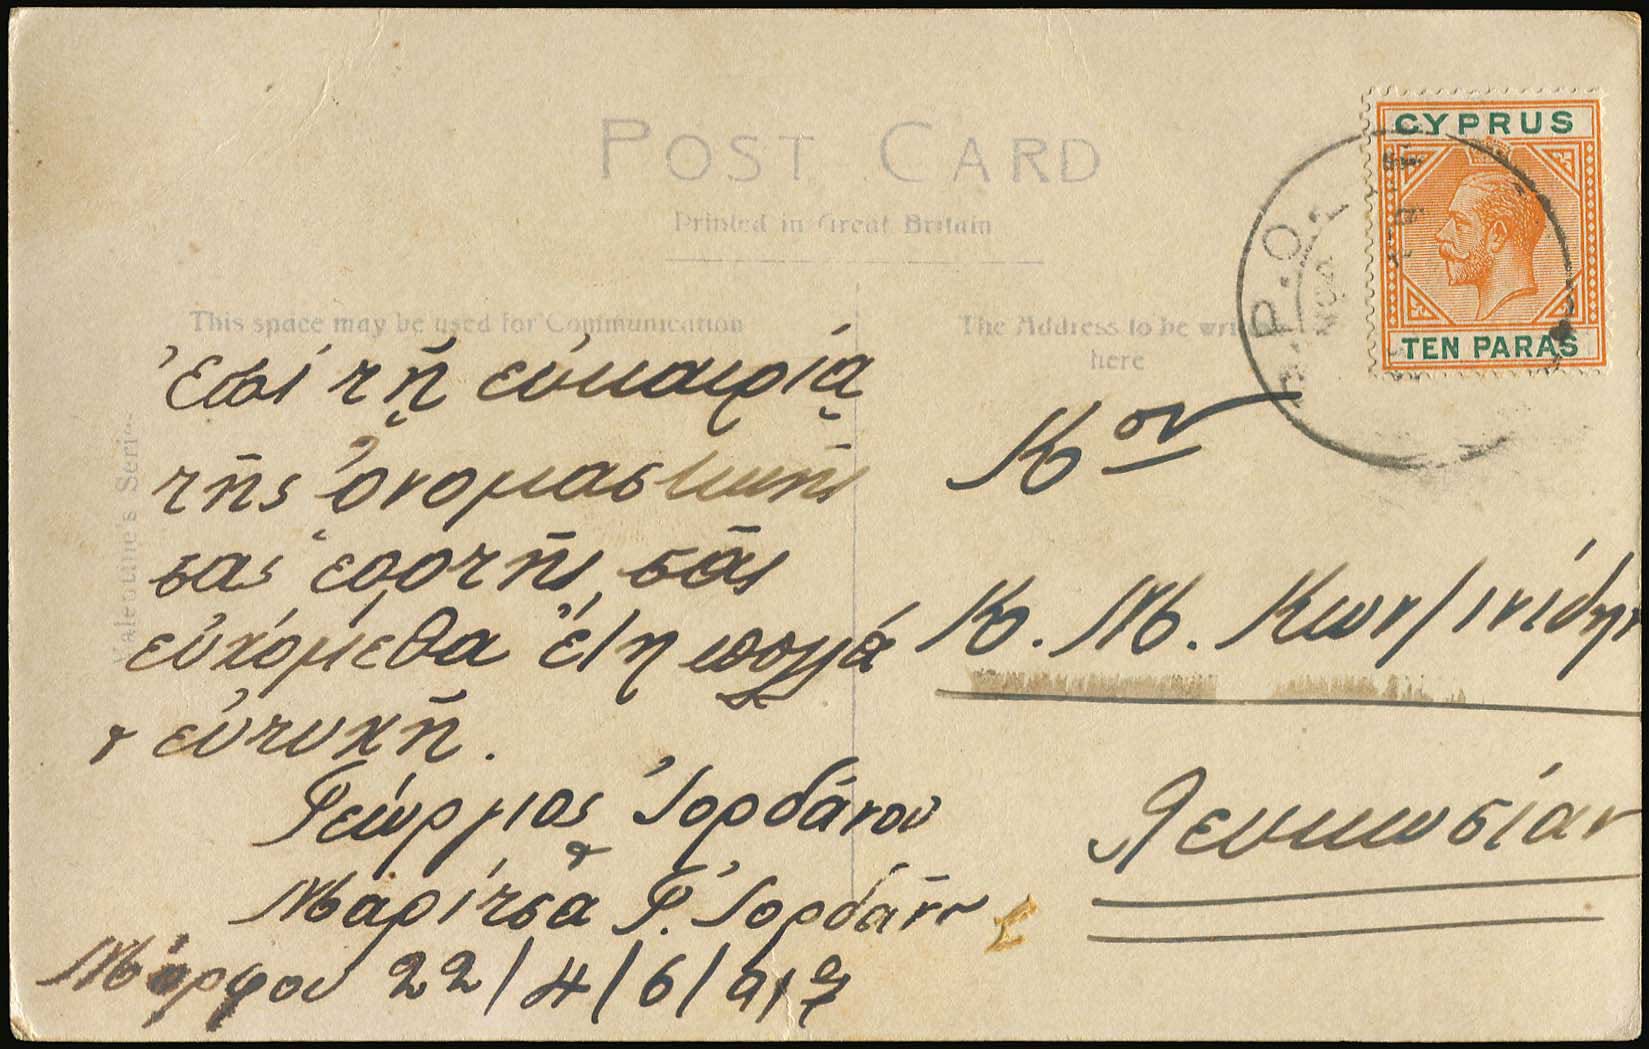 POST CARD
Printed in Great Britain
This space may be used for Communication
The Address to be
here
Valentine's Series
CYPRUS
TEN PARAS
R.P.O.
Ἐπὶ τῇ εὐκαιρίᾳ
τῆς ὀνομαστικῆς
σας ἑορτῆς, σᾶς
εὐχόμεθα ἔτη πολλά
& εὐτυχῆ.
Γεώργιος Ἰορδάνου
&
Μαρίτσα Γ. Ἰορδάνου
Μόρφου 22/4/6/917
Κον
Κ. Μ. Κων/τινίδην
Λευκωσίαν